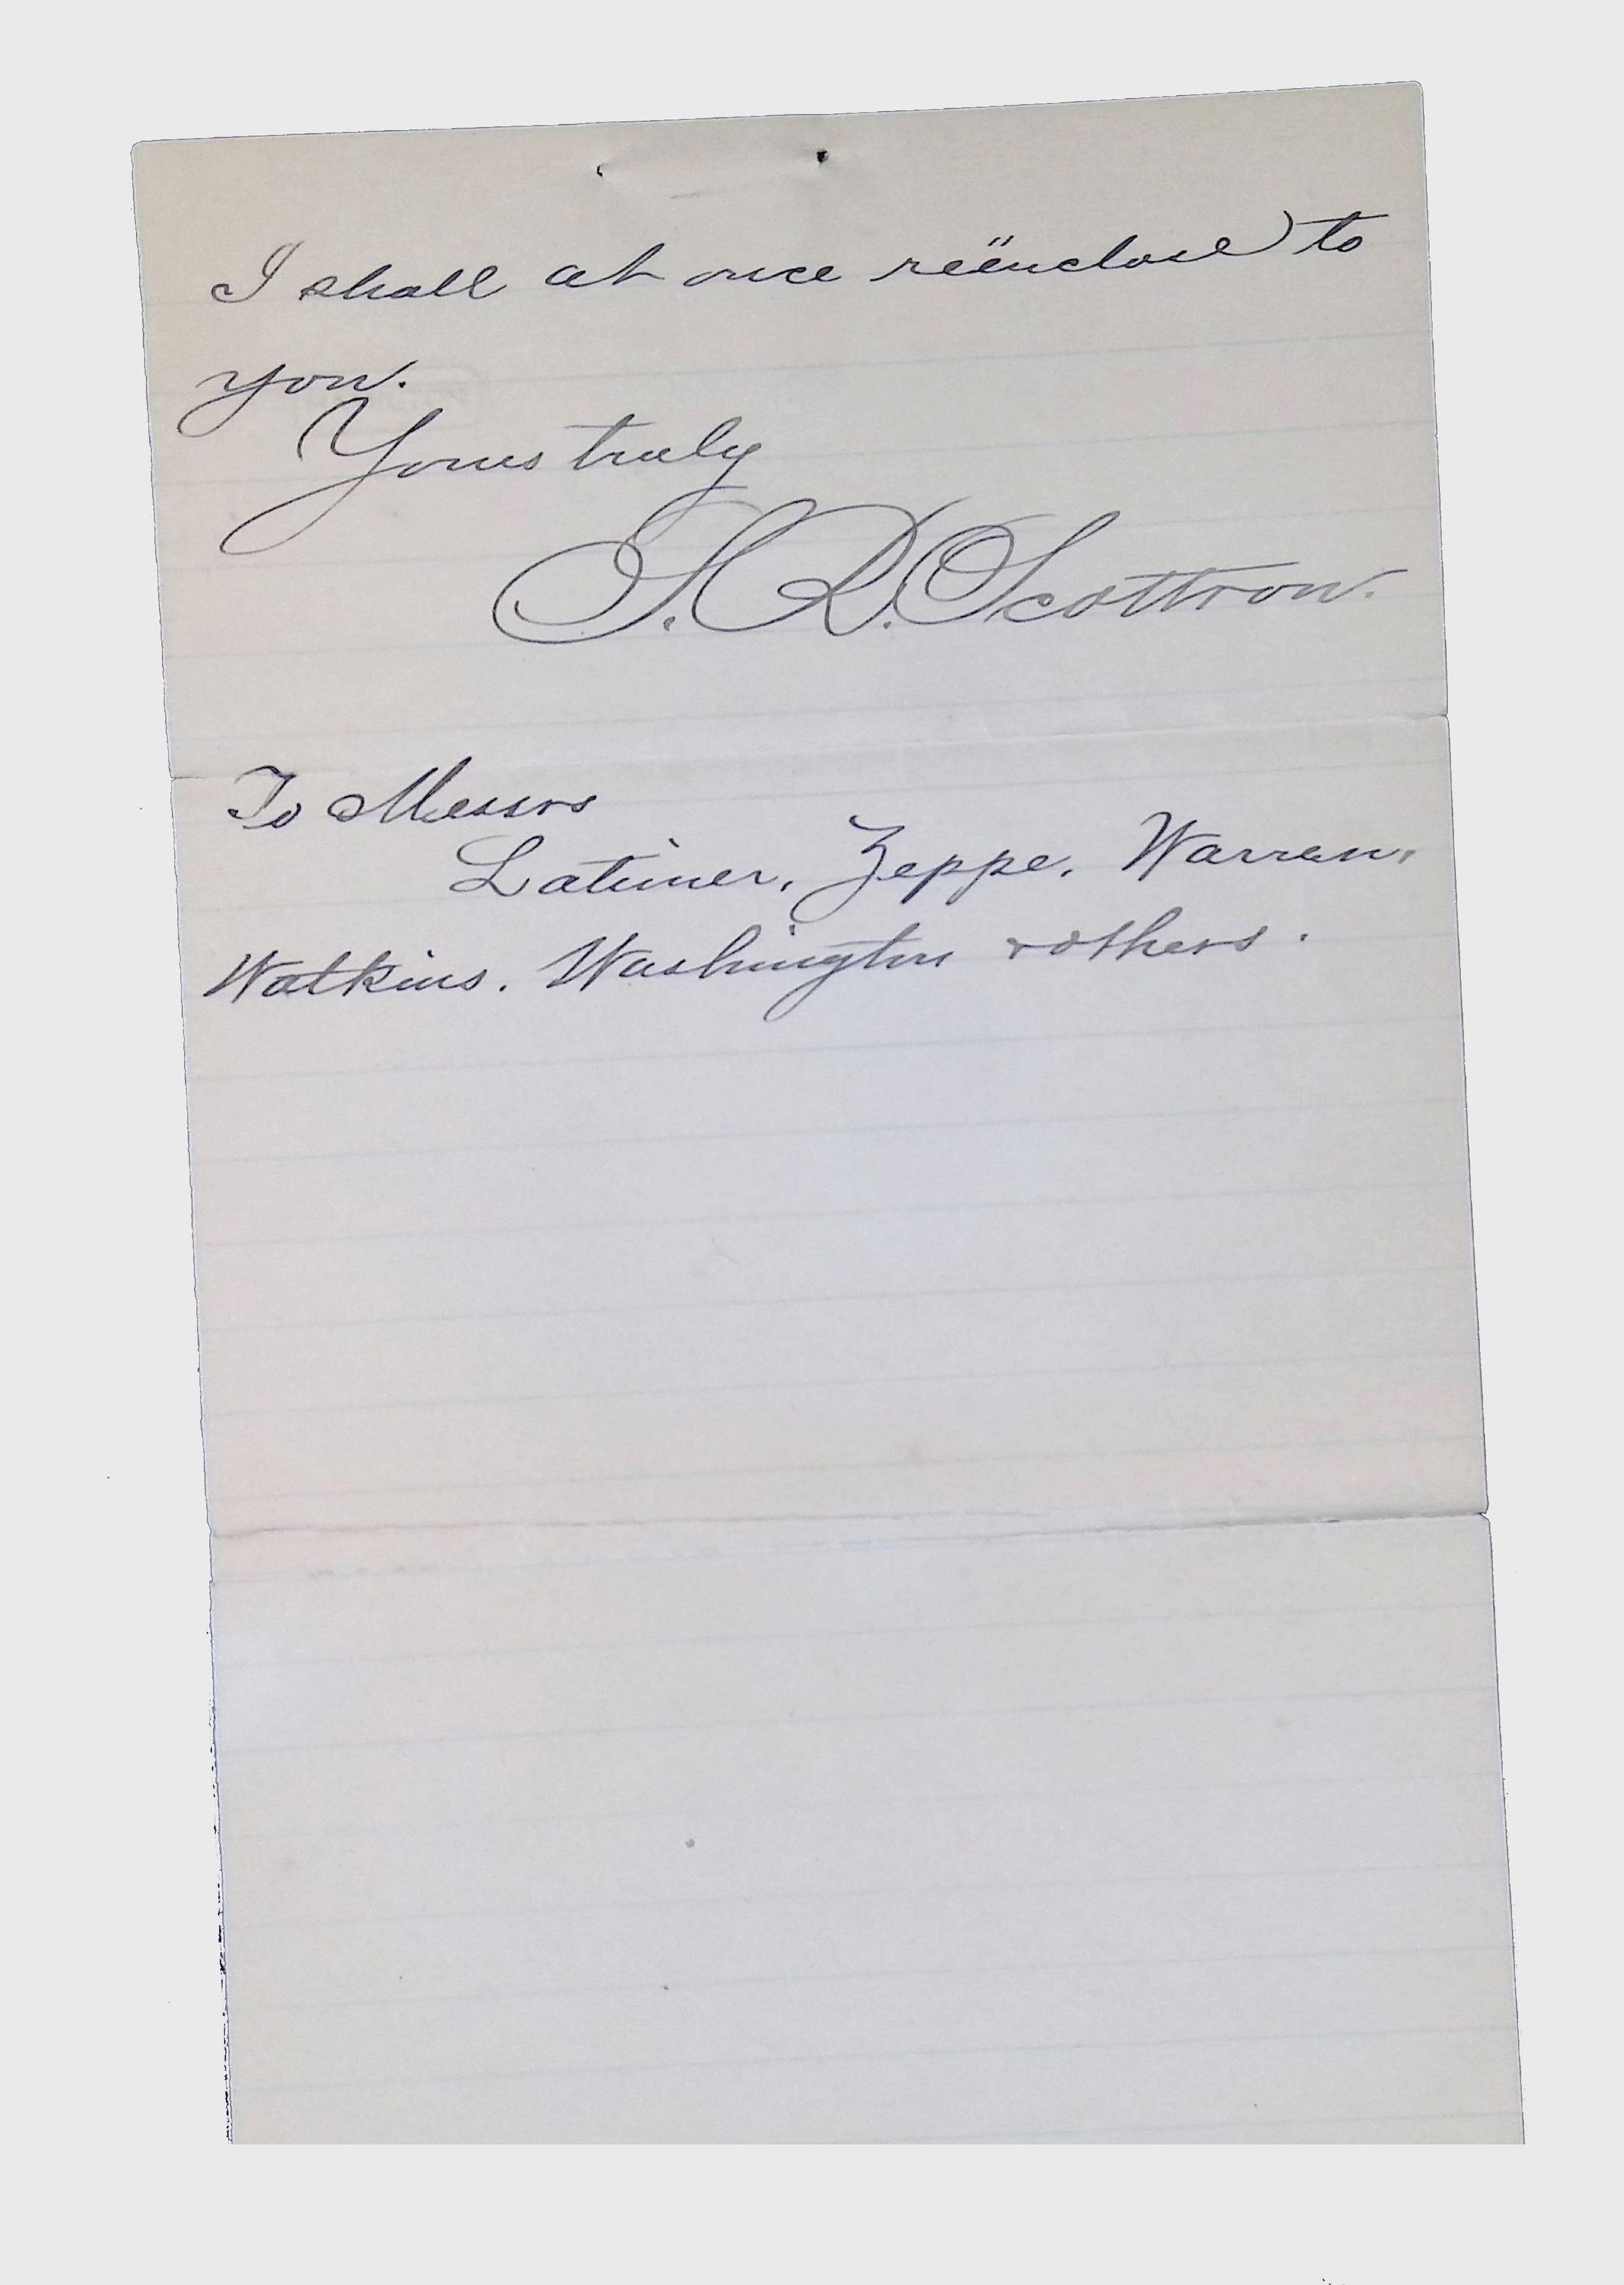 I shall at once reënclose to
you.
Yours truly
S. R. Scottron.
To Messrs
Latimer, Zeppe, Warren,
Watkins, Washington & others.